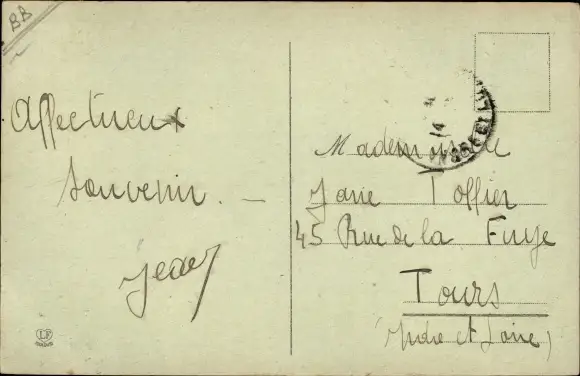 BB
Affectueux
Souvenir. —
Jean
Mademoiselle
Janie Toffier
45 Rue de la Fuye
Tours
(Indre et Loire)
LF